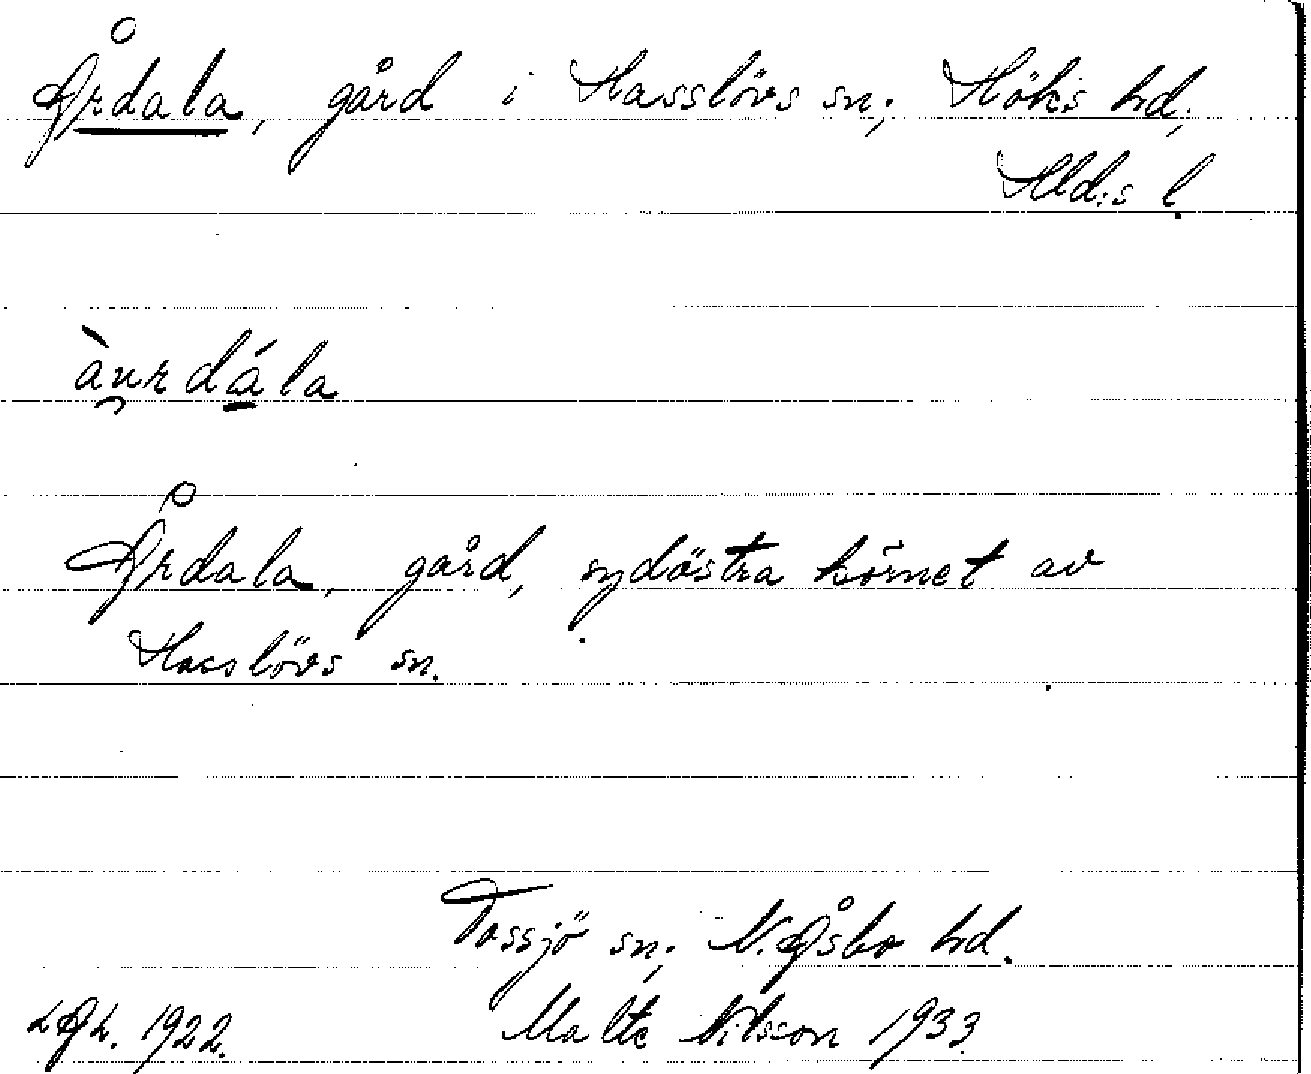 Årdala, gård i Hasslövs sn; Höks hd;
Hld:s l.
àu̯rdá̱la
Årdala, gård, sydöstra hörnet av
Hasslövs sn.
Tossjö sn; N. Åsbo hd.
LAL. 1922. Malte Nilsson 1933